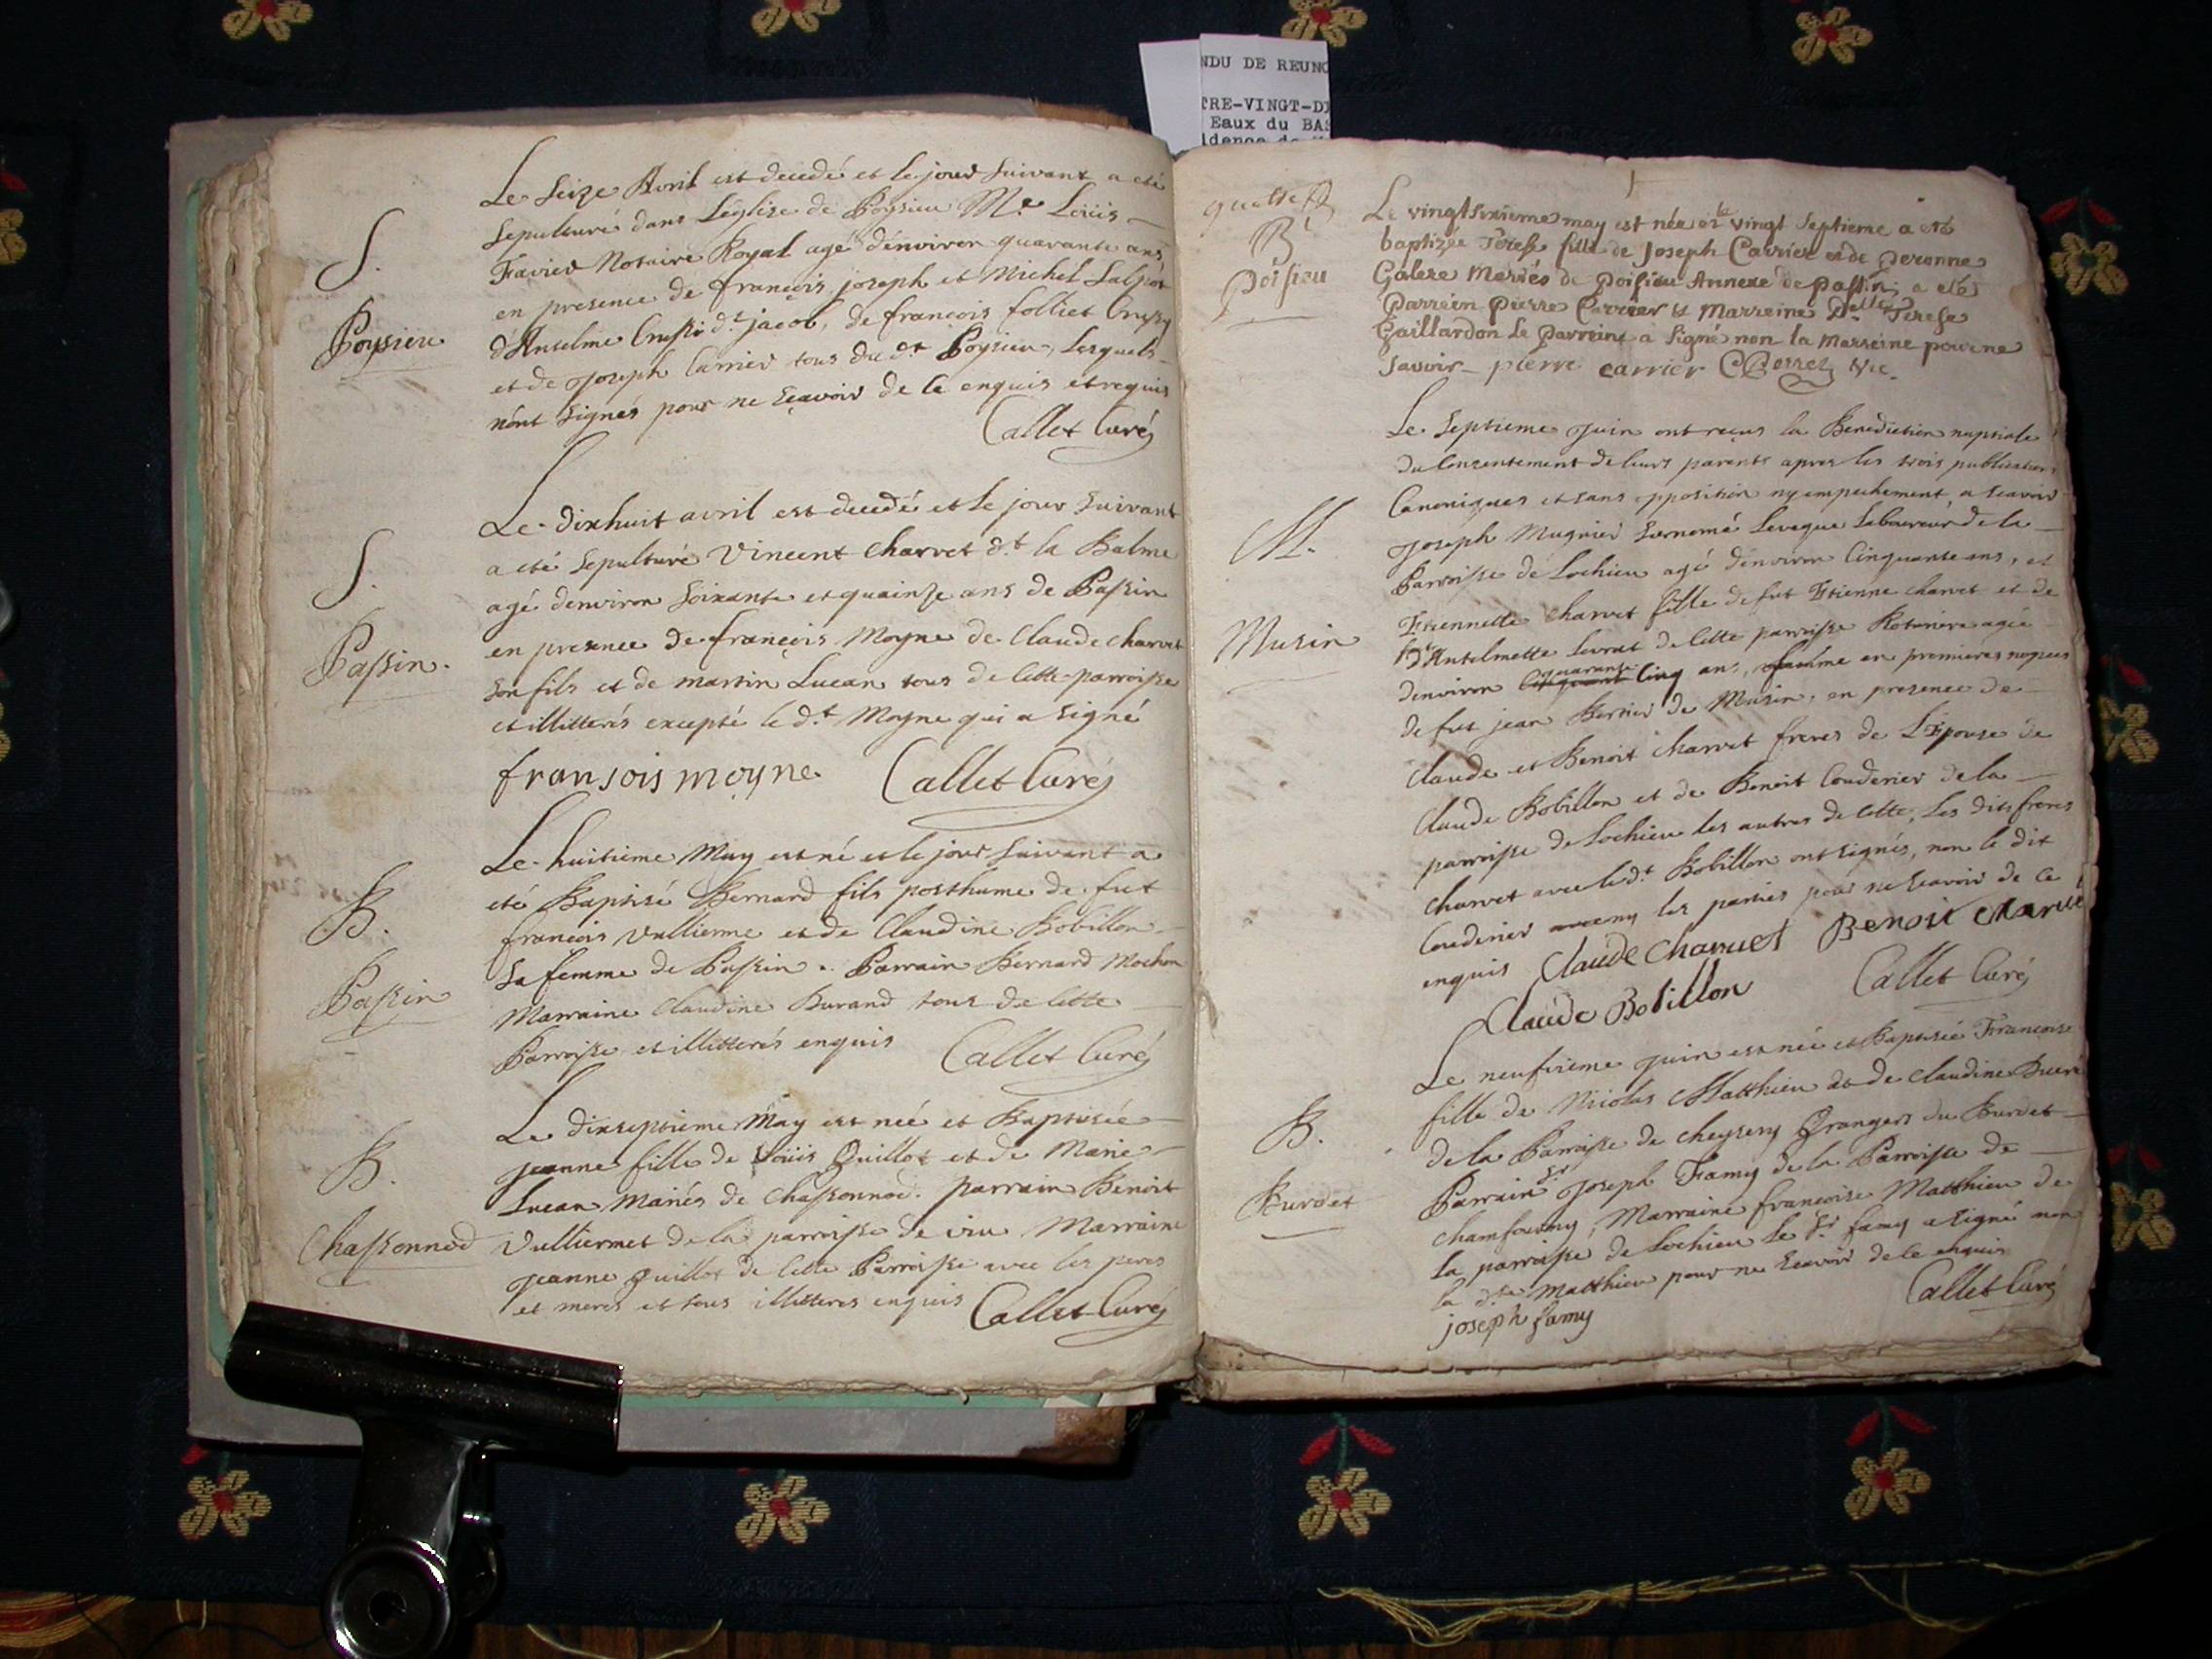 NDU DE REUNO
TRE-VINGT-DI
Eaux du BAS
S.
Poysieu
Le Seize Avril est decedé et le jour suivant a eté
sepulturé dans L'eglise de Poysieu Mr. Loüis
Favier Notaire Royal agé d'environ quarante ans
en presence de françois joseph et Michel
d'Anselme Crussi d.t jacob, de francois folliet Crussy
et de Joseph Carrier tous du d.t Poysieu, Lesquels
n'ont signés pour ne sçavoir de ce enquis et requis
Callet Curé
S.
Passin.
Le dixhuit avril est decedé et le jour suivant
a eté sepulturé Vincent Charvet d.t la Balme
agé denviron soixante et quainze ans de Passin
en presence de françois Moyne de Claude charvet
son fils et de martin Lucan tous de cette parroisse
et illitterés excepté le d.t Moyne qui a signé
fransois moyne. Callet Curé
B.
Passin
Le huitieme May est né et le jour suivant a
eté Baptisé Bernard fils posthume de fut
francois Vullierme et de Claudine Bobillon
sa femme de Passin. Parrain Bernard Mochon
Marraine Claudine Burand tous de cette
Parroisse et illitterés enquis Callet Curé
B.
Chassonnod
Le dixseptieme May est née et Baptisée
jeanne fille de Loüis Quillot et de Marie
Lucan Mariés de Chassonnod. parrain Benoit
Vulliermet de la parroisse de viu Marraine
jeanne quillot de cette Parroisse avec les peres
et meres et tous illitteres enquis Callet Curé
B.
poisieu
Le vingtsixieme may est née et le vingt septieme a eté
baptizée Terese fille de Joseph Carrier et de peronne
Galere Mariés de poisieu Annexe de passin, a eté
parrein pierre Carrier et Marreine D.elle Terese
Gaillardon Le parrein a signé non la marreine pour ne
savoir pierre carrier Vic.
M.
Musin
Le Septieme Juin ont reçus la Benediction nuptiale
du Consentement de leurs parents apres les trois publications
Canoniques et sans opposition ny empechement a scavoir
Joseph Mugnier surnomé Leveque Laboureur de la
Parroisse de Lochieu agé d'environ Cinquante ans, et
Etiennette Charvet fille de fut Etienne charvet et de
d'Antelmette Levrat de cette parroisse agée
denviron quarante Cinq ans, femme en premieres nopces
de fut jean Bernier de Musin, en presence de
Claude et Benoit Charvet freres de L'Epouse de
Claude Bobillon et de Benoit Couderier de la
parroisse de Lochieu les autres de cette, Les dits freres
charvet avec le d.t Bobillon ont signés, non le dit
Couderier ny les parties pour ne scavoir de ce
enquis Claude Charvet Benoit Charvet
Claude Bobillon Callet Curé
B.
Burdet
Le neufvieme juin est née et Baptisée Francoise
fille de Nicolas Matthieu et de claudine
de la Parroisse de cheyseny Grangers du Burdet
Parrain Sr Joseph Famy de la Parroisse de
Chamfourny, Marraine francoise Matthieu de
La parroisse de Lochieu le Sr. famy a signé non
la d.te Matthieu pour ne scavoir de ce enquis
joseph famy Callet Curé